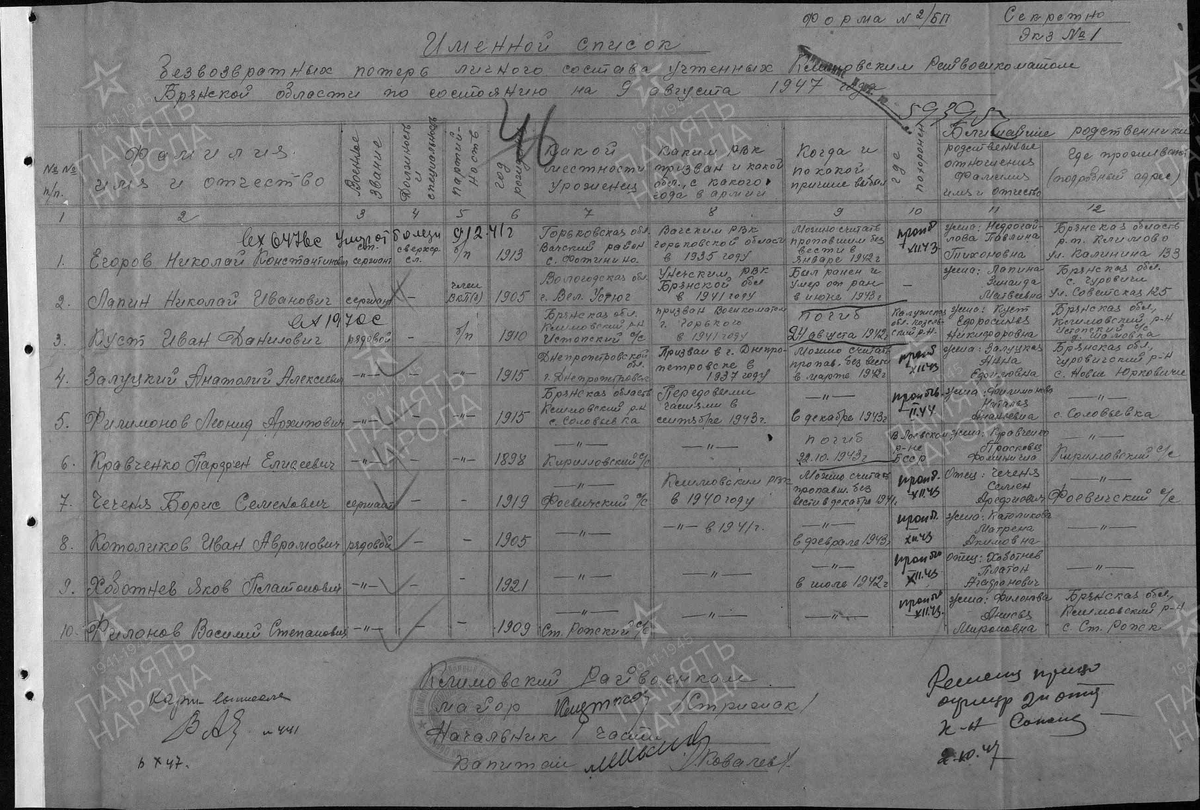 Форма №2/БП
Секретно
Экз №1
Именной список
Безвозвратных потерь личного состава учтенных Климовским Райвоенкоматом
Брянской области по состоянию на 9 августа 1947 года
59395
46
№№ п/п.
Фамилия имя и отчество
Военное звание
Должность и специальность
партийность
год рожден
Какой местности уроженец
Каким РВК призван и какой обл., с какого года в армии
Когда и по какой причине выбыл
где похоронен
Ближайшие родственники
родственные отношения фамилия имя и отчество
Где проживают (подробный адрес)
1 2 3 4 5 6 7 8 9 10 11 12
вх 6476с Умер от болезни 9/2.41г
1. Егоров Николай Константинович ст. сержант сверхср. сл. б/п 1913 Горьковская обл. Вачский район с. Фотинино Вачским РВК горьковской области в 1935 году Можно считать пропавшим без вести в январе 1942г проп XII.43 жена: Тихоновна Брянская область р.п. Климово ул. Калинина 133
2. Лапин Николай Иванович сержант – член ВКП(б) 1905 Вологодская обл. г. Вел. Устюг Унечским РВК Брянской обл в 1941 году Был ранен и умер от ран в июне 1943г – жена: Лапина Зинаида Матвеевна Брянская обл. с. Чуровичи ул. Советская 125
вх 1970с
3. Куст Иван Данилович рядовой – б/п 1910 Брянская обл. Климовский р-н Истопский с/с призван Военкоматом г. Горького в 1941 году погиб 24 августа 1942г Калужская обл. р.н. жена: Куст Ефросинья Никифоровна Брянская обл. Климовский р-н Истопский с/с
4. Залуцкий Анатолий Алексеевич –"– – –"– 1915 Днепропетровской обл. г. Днепропетровск Призван в г. Днепропетровске в 1937 году Можно считать пропав. без вести в марте 1942г проп XII.43 жена: Залуцкая Анна Брянская обл., Чуровичский р-н с. Новые Юрковичи
5. Филимонов Леонид Архипович –"– – –"– 1915 Брянская область Климовский р-н с. Соловьевка Передовыми частями в сентябре 1943г –"– в декабре 1943г проп II.44 жена: Филимонова Наталья –"– с. Соловьевка
6. Кравченко Парфен Елисеевич –"– – –"– 1898 –"– Кирилловский с/с –"– погиб 22.10.1943г р-не БССР жена: Кравченко Просковья Фоминична –"– Кирилловский с/с
7. Чеченя Борис Семенович сержант – –"– 1919 –"– Фоевичский с/с Климовским РВК в 1940 году Можно считать пропавш. без вести в декабре 1941 проп XII.43 Отец: Чеченя Семен –"– Фоевичский с/с
8. Католиков Иван Аврамович рядовой – – 1905 –"– –"– в 1941г. –"– в феврале 1943г. проп. XII.43 жена: Католикова Матрена Акимовна –"–
9. Хоботнев Яков Платонович –"– – – 1921 –"– –"– –"– в июле 1942г проп XII.43 Отец: Хоботнев Платон –"–
10. Филонов Василий Степанович –"– – – 1909 –"– Ст. Ропский с/с –"– –"– проп XII.43 жена: Филонова Анисья Мироновна Брянская обл, Климовский р-н с. Ст. Ропск
Климовский Райвоенком
майор /Стрижак/
Начальник части
капитан /Ковалев/
Карт. выписала
44
6 X 47.
10.47
1941-1945
ПАМЯТЬ НАРОДА